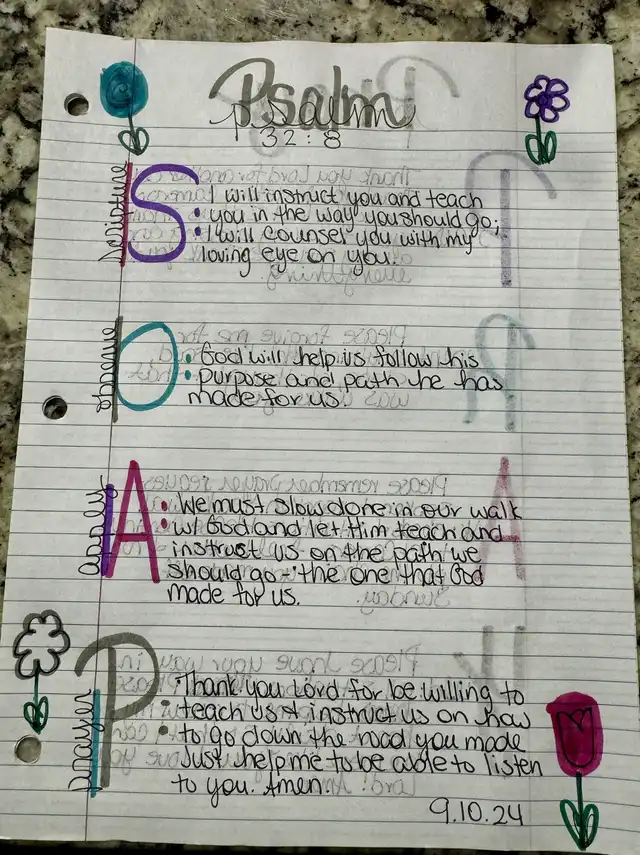 Psalm
psalm
32:8
Scripture
S: I will instruct you and teach
you in the way you should go;
I will counsel you with my
loving eye on you.
observe
O: God will help us follow his
purpose and path he has
made for us.
apply
A: We must slow done in our walk
w/ God and let Him teach and
instruct us on the path we
should go - the one that God
made for us.
prayer
P: Thank you Lord for be willing to
teach us & instruct us on how
to go down the road you made
Just help me to be able to listen
to you. Amen.
9.10.24